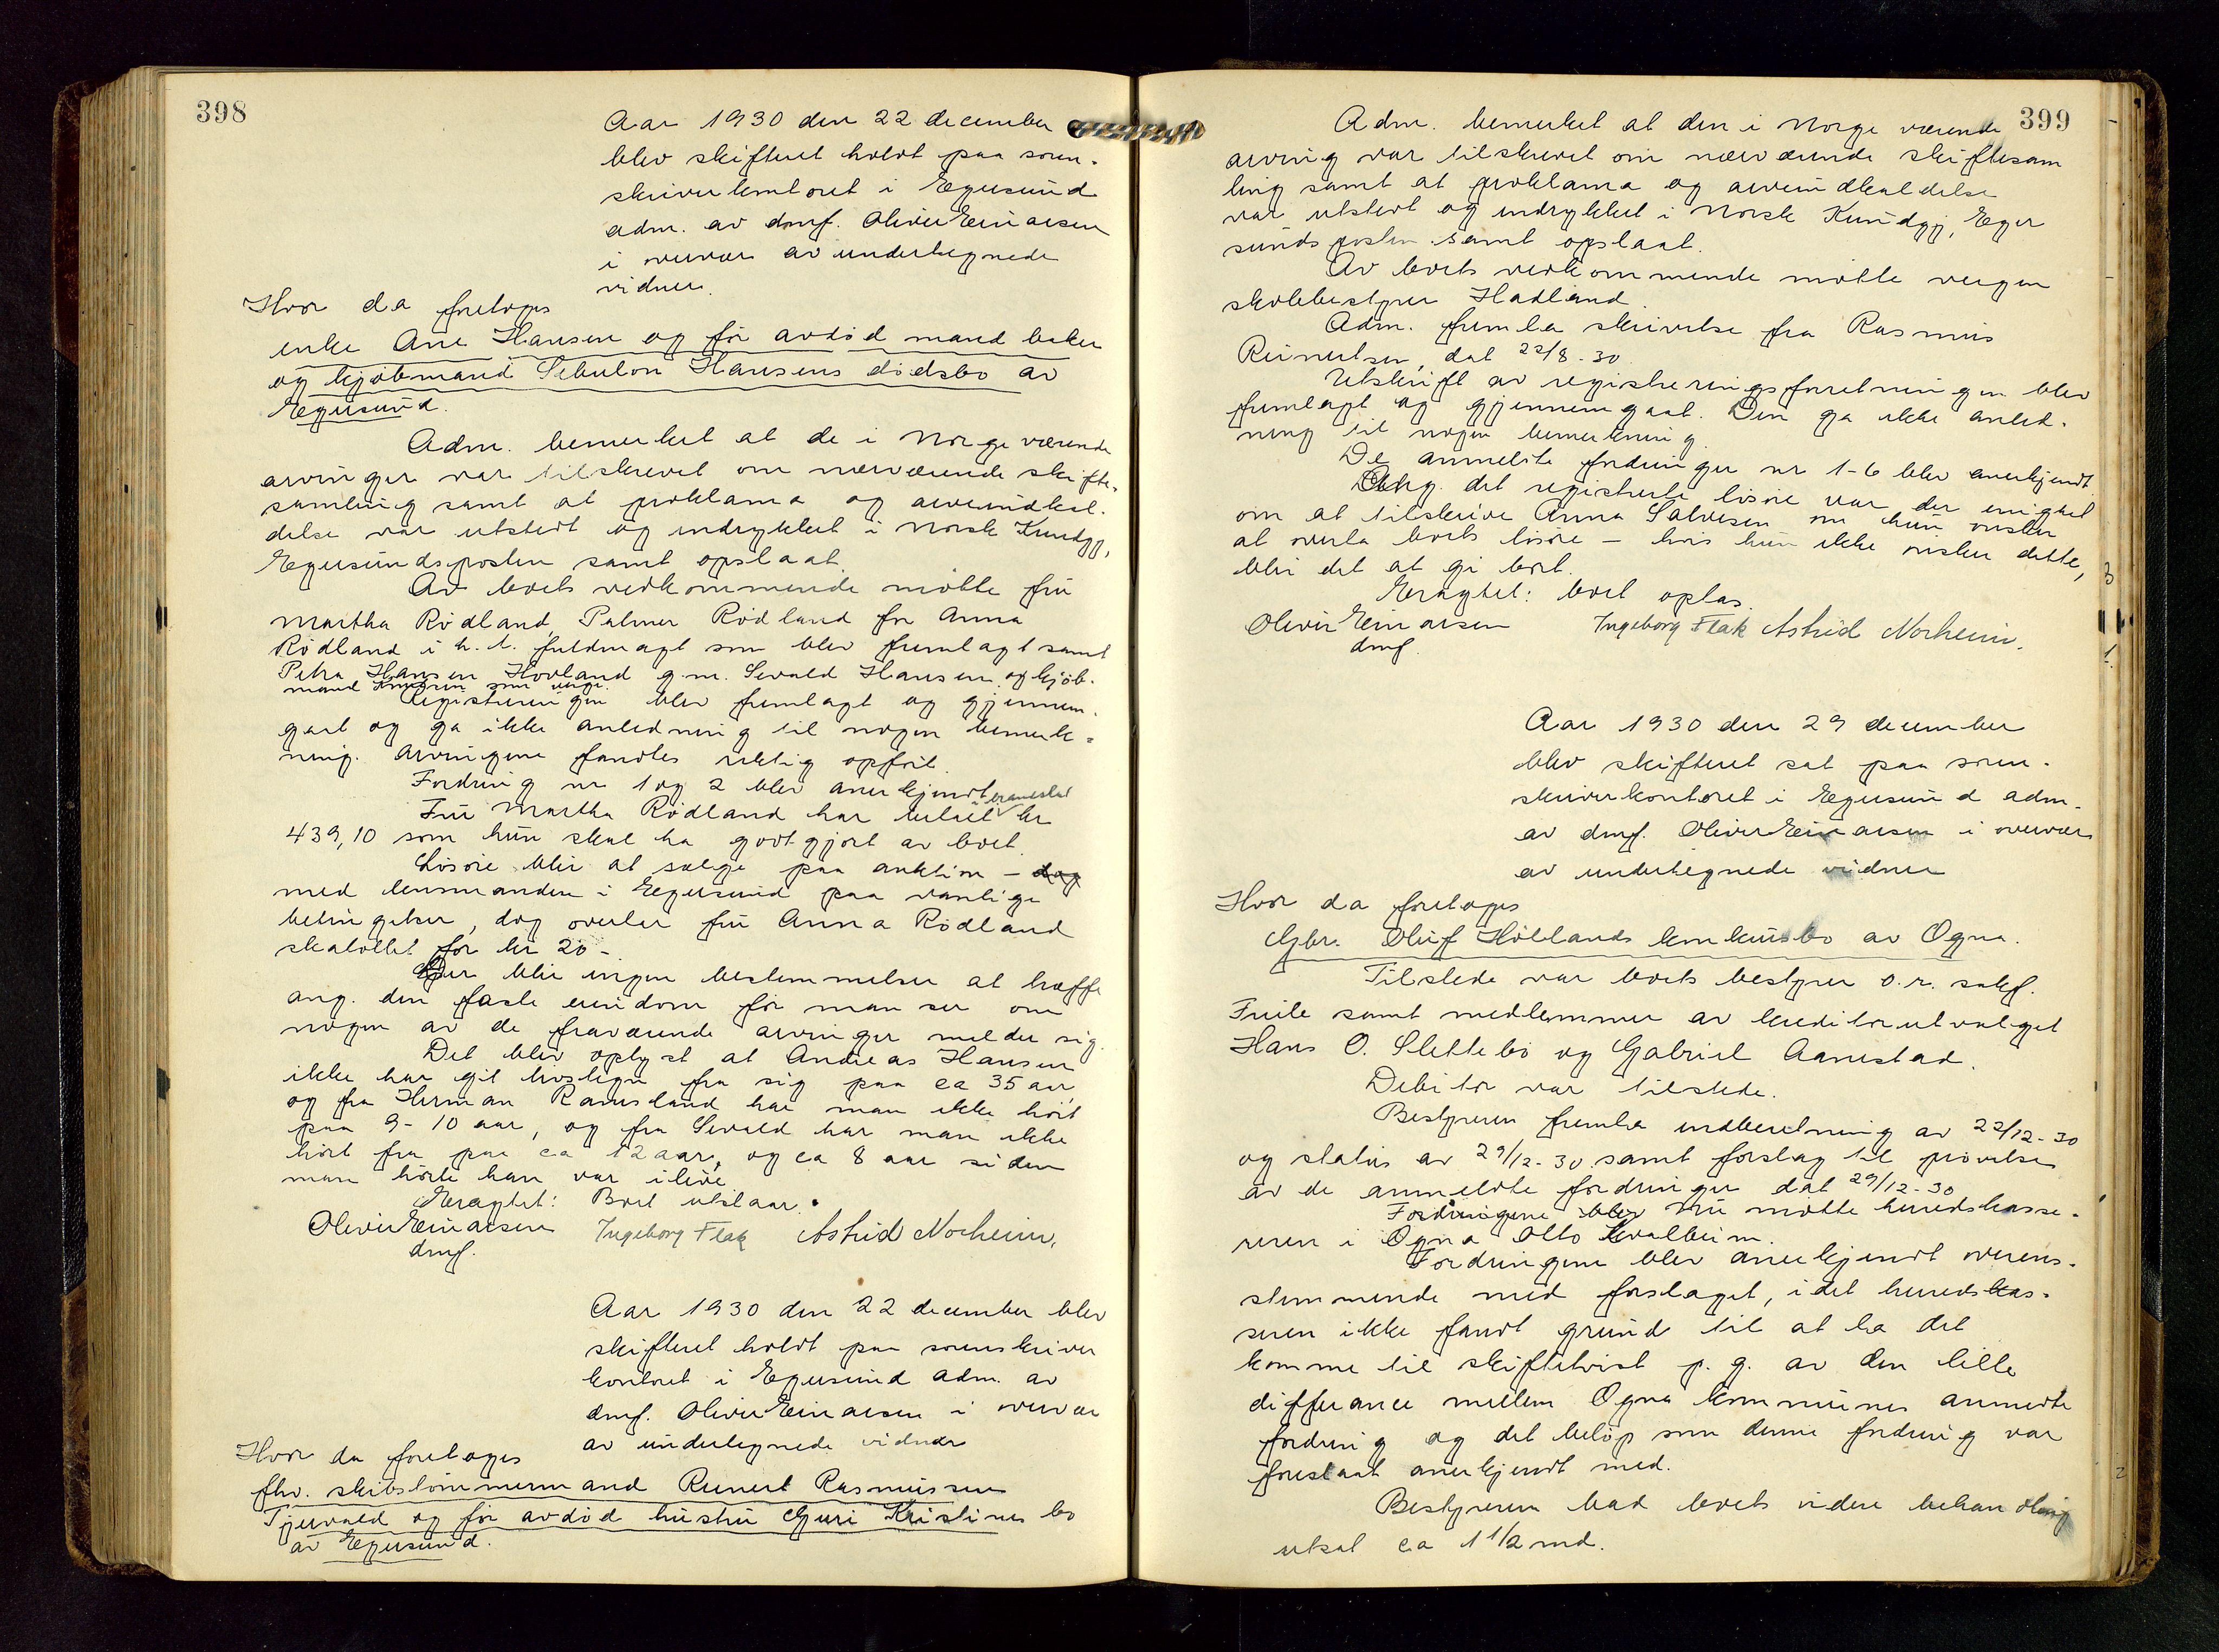 398
Aar 1930 den 22 december
blev skifteret holdt paa soren-
skriverkontoret i Egersund
adm. av dmf. Oliver Einarsen
i overvær av undertegnede
vidner.
Hvor da foretoges
enke Ane Hansen og før avdød mand baker
og kjøbmand Sebulon Hansens dødsbo av
Egersund.
Adm. bemerket at de i Norge værende
arvinger var tilskrevet om nærværende skifte-
samling samt at proklama og arveindkal-
delse var utstedt og indrykket i Norsk Kundgj,
Egersundsposten samt opslaat.
Av boets vedkommende møtte fru
Martha Rødland, Palmer Rødland for Anna
Rødland i h. t. fuldmagt som blev fremlagt samt
Petra Hansen Hovland g.m. Sevald Hansen og kjøb-
mand som verge.
Registreringen blev fremlagt og gjennem-
gaat og ga ikke anledning til nogen bemerk-
ning. Arvingene fandtes riktig opført.
Fordring nr 1 og 2 blev anerkjendt
Fru Martha Rødland har betalt kr
439,10 som hun skal ha godtgjort av boet.
Løsøre blir at sælge paa auktion - dog
med lensmanden i Egersund paa vanlige
betingelser, dog overlar fru Anna Rødland
skatollet for kr 20 -
Der blir ingen bestemmelser at træffe
ang. den faste eiendom før man ser om
nogen av de fraværende arvinger melder sig.
Det blev oplyst at Andreas Hansen
ikke har git livstegn fra sig paa ca 35 aar
og fra Herman Ramsland har man ikke hørt
paa 9-10 aar, og fra Sevald har man ikke
hørt fra paa ca 12 aar, og ca 8 aar siden
man hørte han var ilive
Eragtet: Boet utstaar.
Oliver Einarsen Ingeborg Flak Astrid Norheim,
dmf.
Aar 1930 den 22 december blev
skifteret holdt paa sorenskriver
kontoret i Egersund adm. av
dmf. Oliver Einarsen i overvær
av undertegnede vidner
Hvor da foretoges
fhv. skibstømmermand Reinert Rasmussen
Tjuvald og før avdød hustru Guri Kristines bo
av Egersund.
399
Adm. bemerket at den i Norge værende
arving var tilskrevet om nærværende skiftesam
ling samt at proklama og arveindkaldelse
var utstedt og indrykket i Norsk Kundgj, Eger
sundsposten samt opslaat.
Av boets vedkommende møtte vergen
skolebestyrer Hadland.
Adm. fremla skrivelse fra Rasmus
Reinertsen, dat 22/8-30.
Utskrift av registreringsforretningen blev
fremlagt og gjennemgaat. Den ga ikke anled-
ning til nogen bemerkning.
De anmeldte fordringer nr 1-6 blev anerkjendt.
Ang. det registrerte løsøre var der enighet
om at tilskrive Anna Salvesen om hun ønsker
at overta boets løsøre - hvis hun ikke ønsker dette,
blir det at gi bort.
Eragtet: boet optas.
Oliver Einarsen Ingeborg Flak Astrid Norheim.
dmf.
Aar 1930 den 29 december
blev skifteret sat paa soren-
skriverkontoret i Egersund adm.
av dmf. Oliver Einarsen i overvær
av undertegnede vidner
Hvor da foretoges
Gbr. Oluf Høllands konkursbo av Ogna.
Tilstede var boets bestyrer o.r. sakf.
Feile samt medlemmer av kreditorutvalget
Hans O. Slettebø og Gabriel Aanestad.
Debitor var tilstede.
Bestyreren fremla indberetning av 22/12-30
og status av 29/12-30 samt forslag til prøvelse
av de anmeldte fordringer dat 29/12-30
Fordringene blev Nu møtte herredskasse-
reren i Ogna Otto Kvalbeim.
Fordringene blev anerkjendt overens-
stemmende med forslaget, idet herredskas-
seren ikke fandt grund til at la det
komme til skiftetvist p. g. av den lille
differance mellem Ogna kommunes anmeldte
fordring og det beløp som denne fordring var
foreslaat anerkjendt med.
Bestyreren bad boets videre behandling
utsat ca 1 1/2 md.